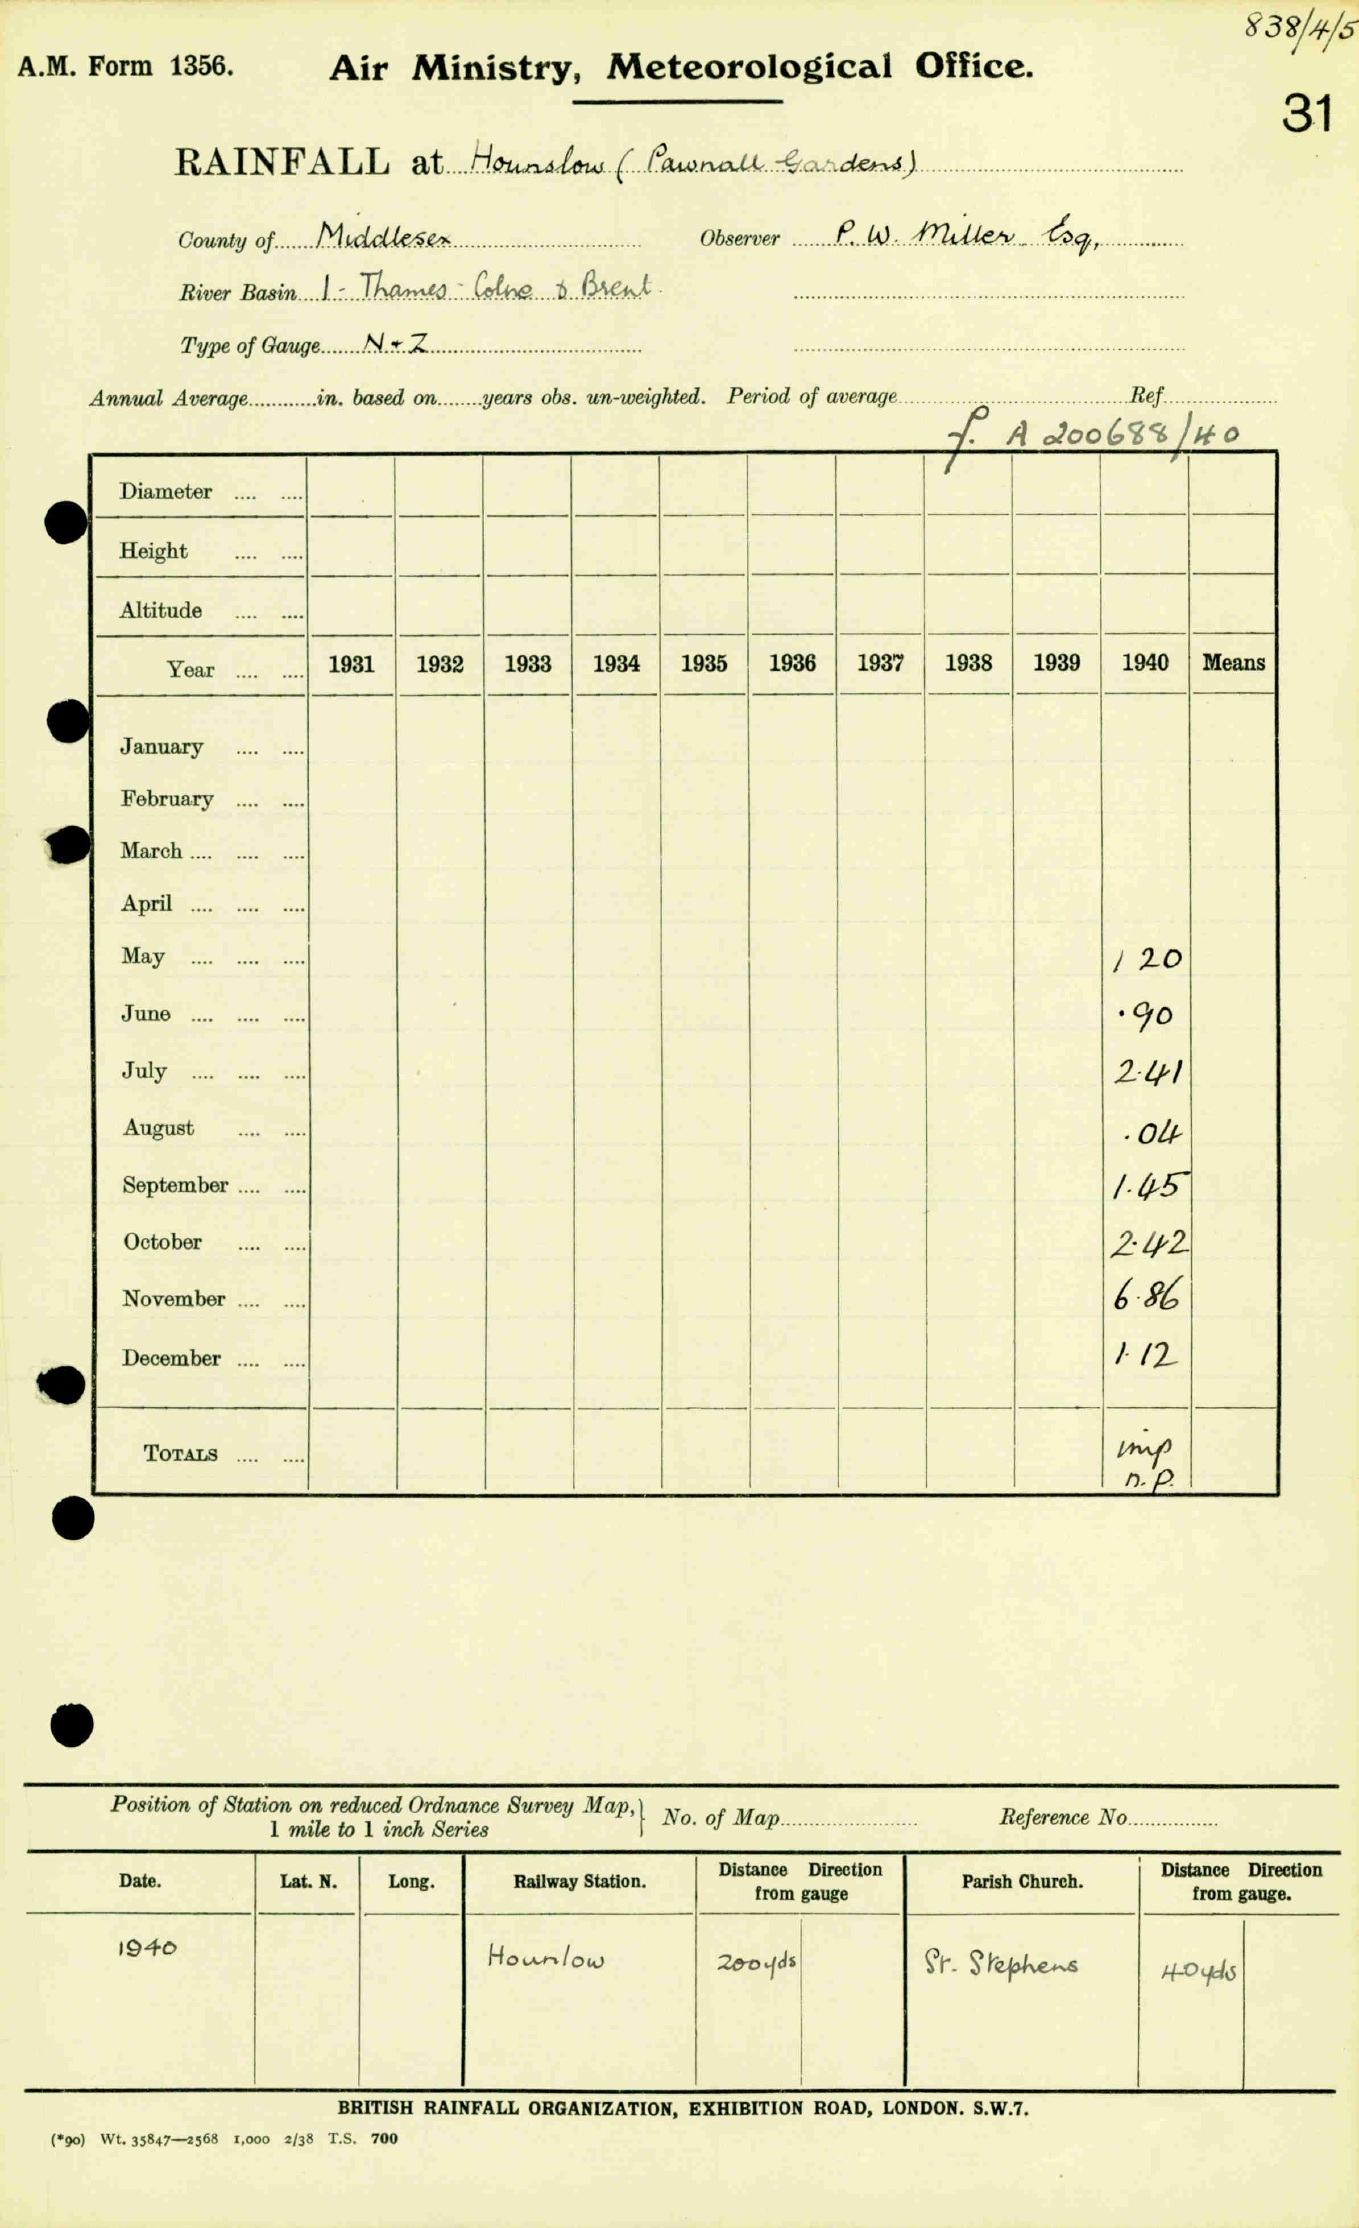 838/4/5
A.M. Form 1356. Air Ministry, Meteorological Office.
31
RAINFALL at Hounslow (Pawnall Gardens)
County of Middlesex Observer P. W. Miller Esq,
River Basin 1 - Thames - Colne & Brent
Type of Gauge N + Z
Annual Average............in. based on........years obs. un-weighted. Period of average Ref.
f. A 200688/40
Diameter .... ....
Height .... ....
Altitude .... ....
Year .... .... 1931 1932 1933 1934 1935 1936 1937 1938 1939 1940 Means
January .... ....
February .... ....
March .... .... ....
April .... .... ....
May .... .... .... 1 20
June .... .... .... ·90
July .... .... .... 2·41
August .... .... .04
September .... .... 1.45
October .... .... 2·42
November .... .... 6·86
December .... .... 1·12
TOTALS .... .... imp
n.p.
Position of Station on reduced Ordnance Survey Map,} No. of Map Reference No
1 mile to 1 inch Series
Date. Lat. N. Long. Railway Station. Distance Direction from gauge Parish Church. Distance Direction from gauge.
1940 Hounlow 200yds St. Stephens 40yds
BRITISH RAINFALL ORGANIZATION, EXHIBITION ROAD, LONDON. S.W.7.
(*90) Wt. 35847—2568 1,000 2/38 T.S. 700